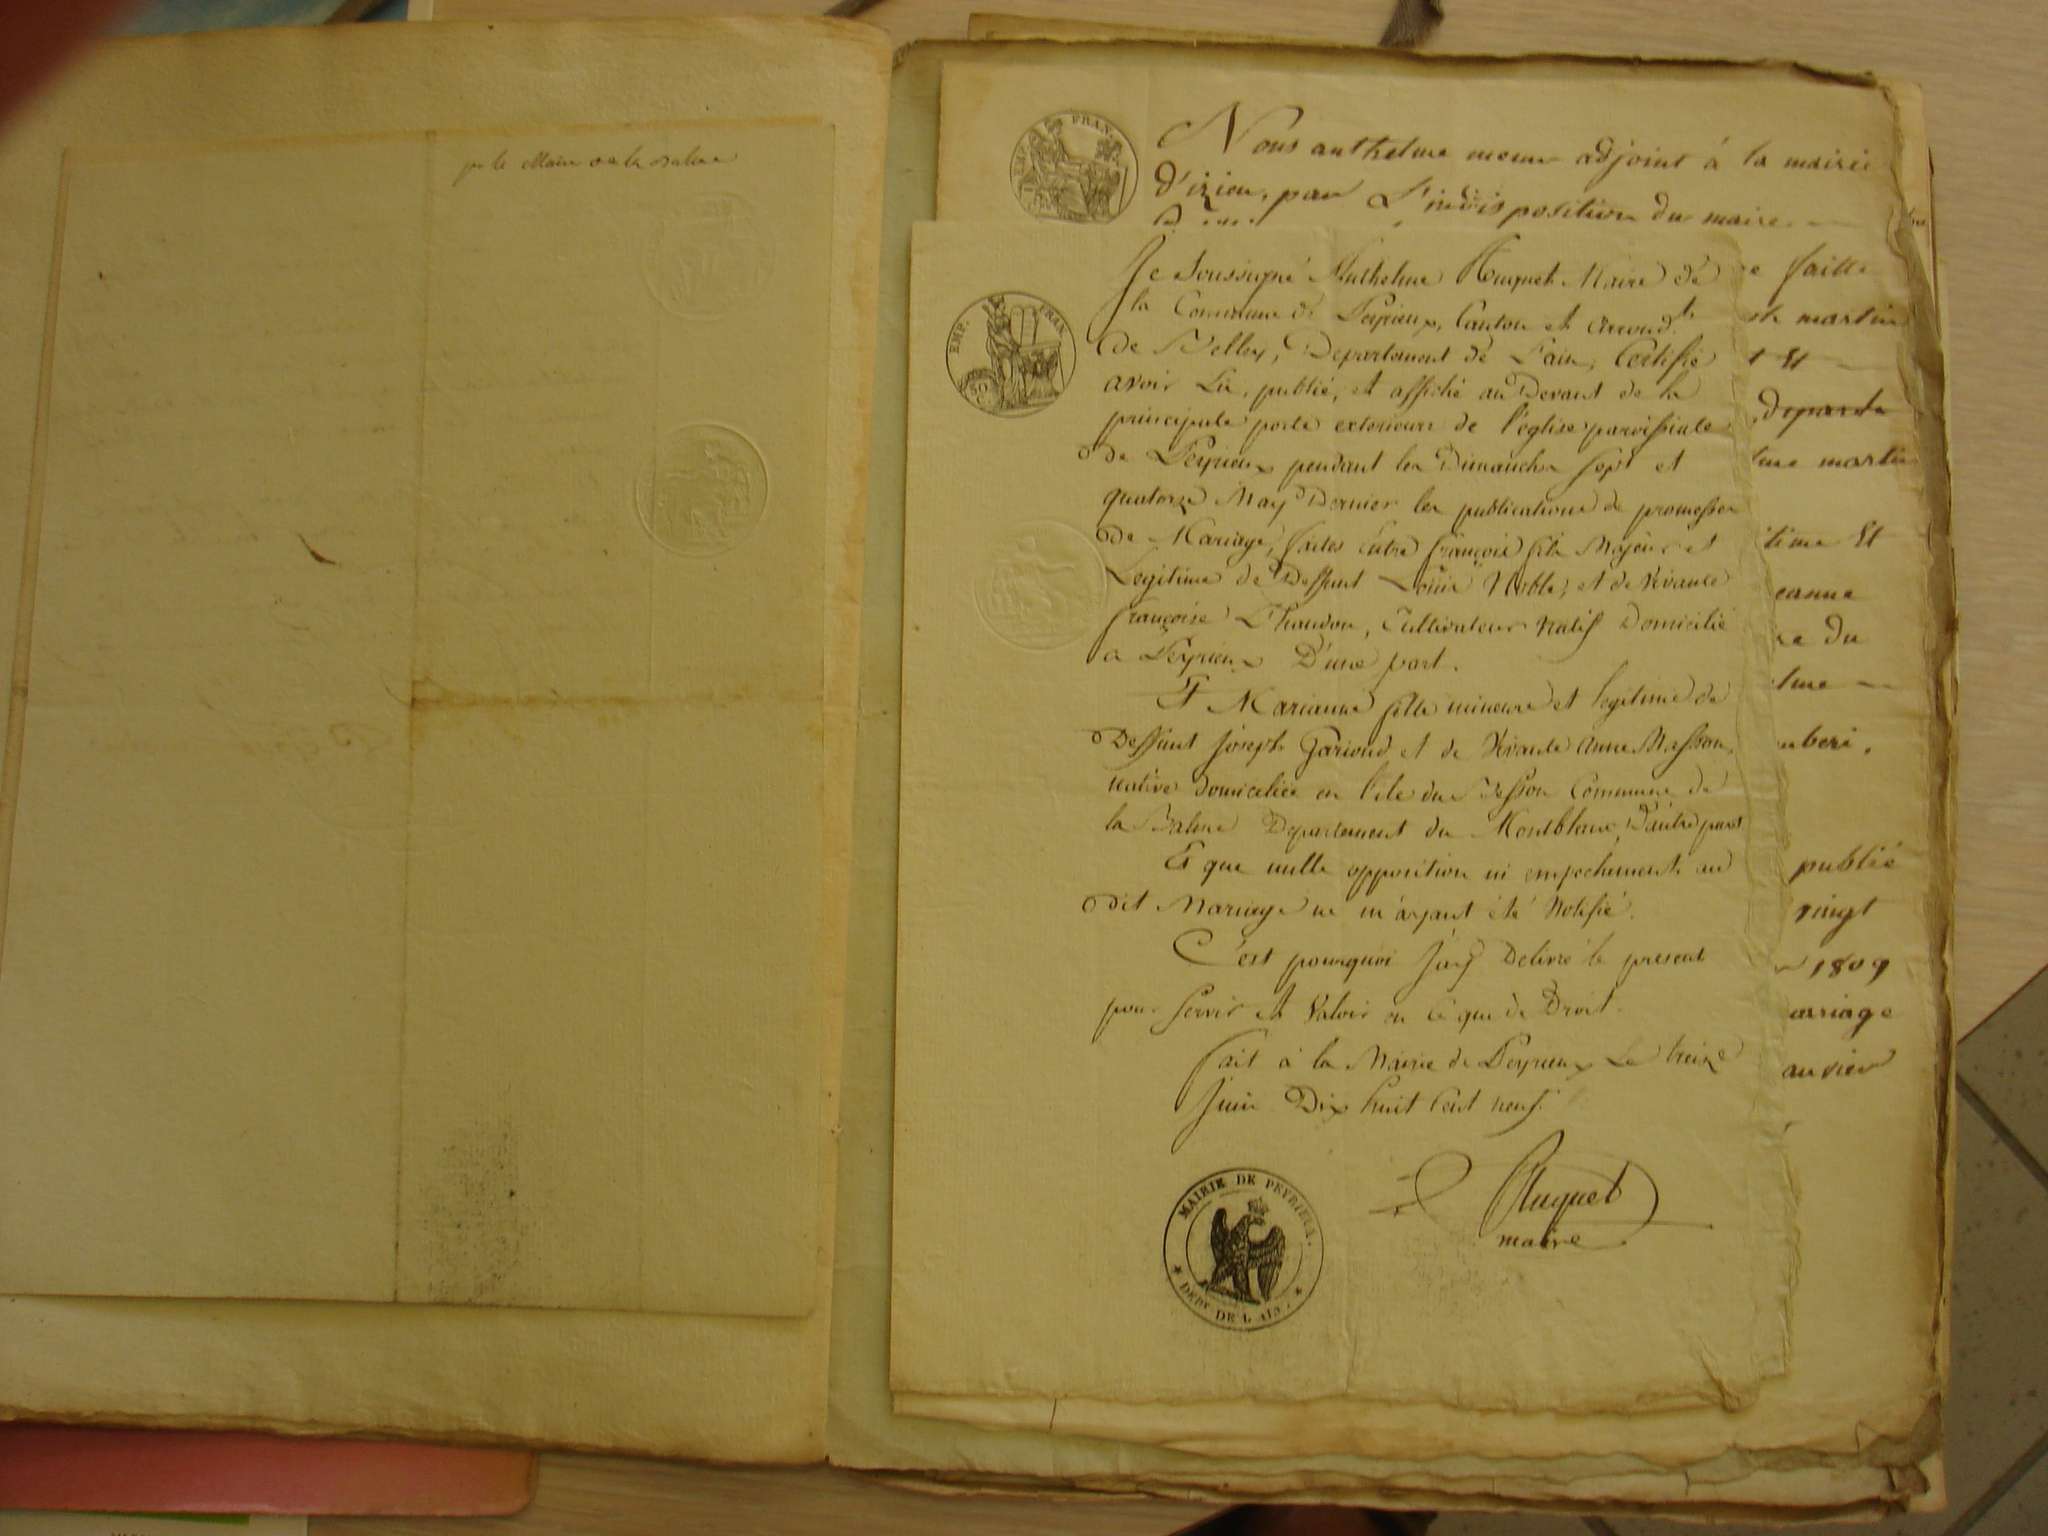 pr le Maire de la Balme
EMP. FRAN.
Nous anthelme adjoint à la mairie
D'izieu, par L'indisposition du maire
Je Soussigné Anthelme Huguet Maire dé
la Commune de Peyrieux, Canton et arrond.t
de Belley, Departement dé L'ain, Certifie
avoir Lu, publié, et affiché au Devant de la
principale porte exterieure de l'églisé paroissiale
de Peyrieux pendant les Dimanche sept et
quatorze May Dernier les publications de promesses
De Mariage, faites éntre françois fils Majeur et
Legitime de Deffunt Louis Noble, et de Vivante
françoise Chaudon, Cultivateur Natif Domicilié
a Peyrieux D'une part.
Et Marianne fille mineure et legitime de
Deffunt joseph Gariond et de Vivante Anne Masson,
native domiciliée en l'ile du Besson Commune dé
la Balme Departement du Montblanc, D'autre part
Et que nulle opposition ni empechement au
dit Mariage ne m'ayant été Notifié.
C'est pourquoi J'ay Delivré le present
pour servir et Valoir en Ce que de Droit.
fait à la Mairie de Peyrieux Le treize
Juin Dix huit Cent neuf.
Huguet
maire
MAIRIE DE PEYRIEUX.
DEPT DE L'AIN.
EMP. FRAN
50 C
faitte
martin
Et
Departe
martin
time Et
eanne
re du
lme
beri.
publié
vingt
1809
ariage
anvier